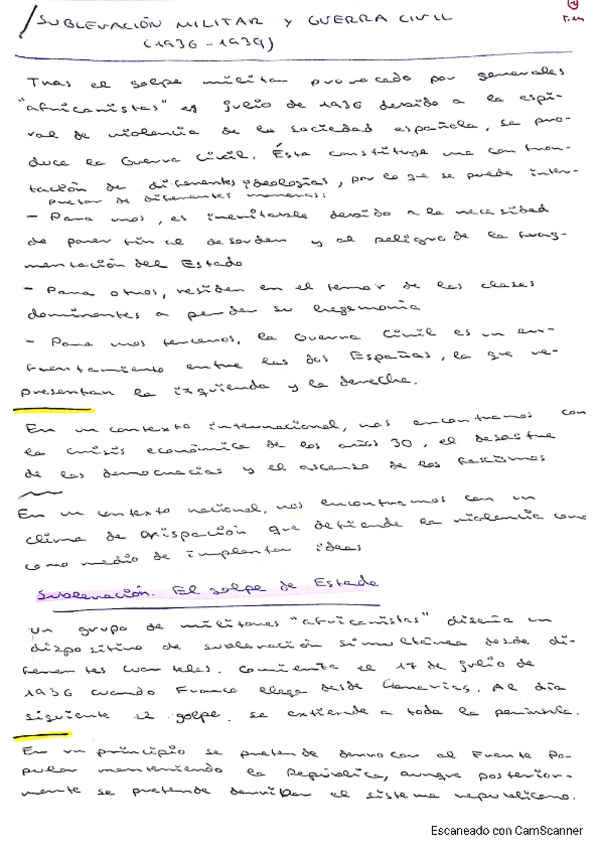 SUBLEVACIÓN MILITAR Y GUERRA CIVIL
(1936-1939)
Tras el golpe militar provocado por generales
"africanistas" en julio de 1936 debido a la espi-
ral de violencia de la sociedad española, se pro-
duce la Guerra Civil. Ésta constituye una confron-
tación de diferentes ideologías, por lo que se puede inter-
pretar de diferentes maneras:
- Para unos, es inevitable debido a la necesidad
de poner fin al desorden y al peligro de la frag-
mentación del Estado
- Para otros, residen en el temor de las clases
dominantes a perder su hegemonía
- Para unos terceros, la Guerra Civil es un en-
frentamiento entre las dos Españas, la que re-
presentan la izquierda y la derecha.
En un contexto internacional, nos encontramos con
la crisis económica de los años 30, el desastre
de las democracias y el ascenso de los fascismos
En un contexto nacional, nos encontramos con un
clima de crispación que defiende la violencia como
como medio de implantar ideas
Sublevación. El golpe de Estado
Un grupo de militares "africanistas" diseña un
dispositivo de sublevación simultánea desde di-
ferentes cuarteles. Comienza el 17 de julio de
1936 cuando Franco llega desde Canarias. Al día
siguiente el golpe se extiende a toda la península.
En un principio se pretende derrocar al Frente Po-
pular manteniendo la República, aunque posterior-
mente se pretende derribar el sistema republicano.
Escaneado con CamScanner